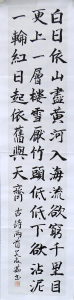 白日依山盡黃河入海流欲窮千里目
更上一層樓雪壓竹頭低低下欲沾泥
一輪紅日起依舊與天齊
古詩兩首